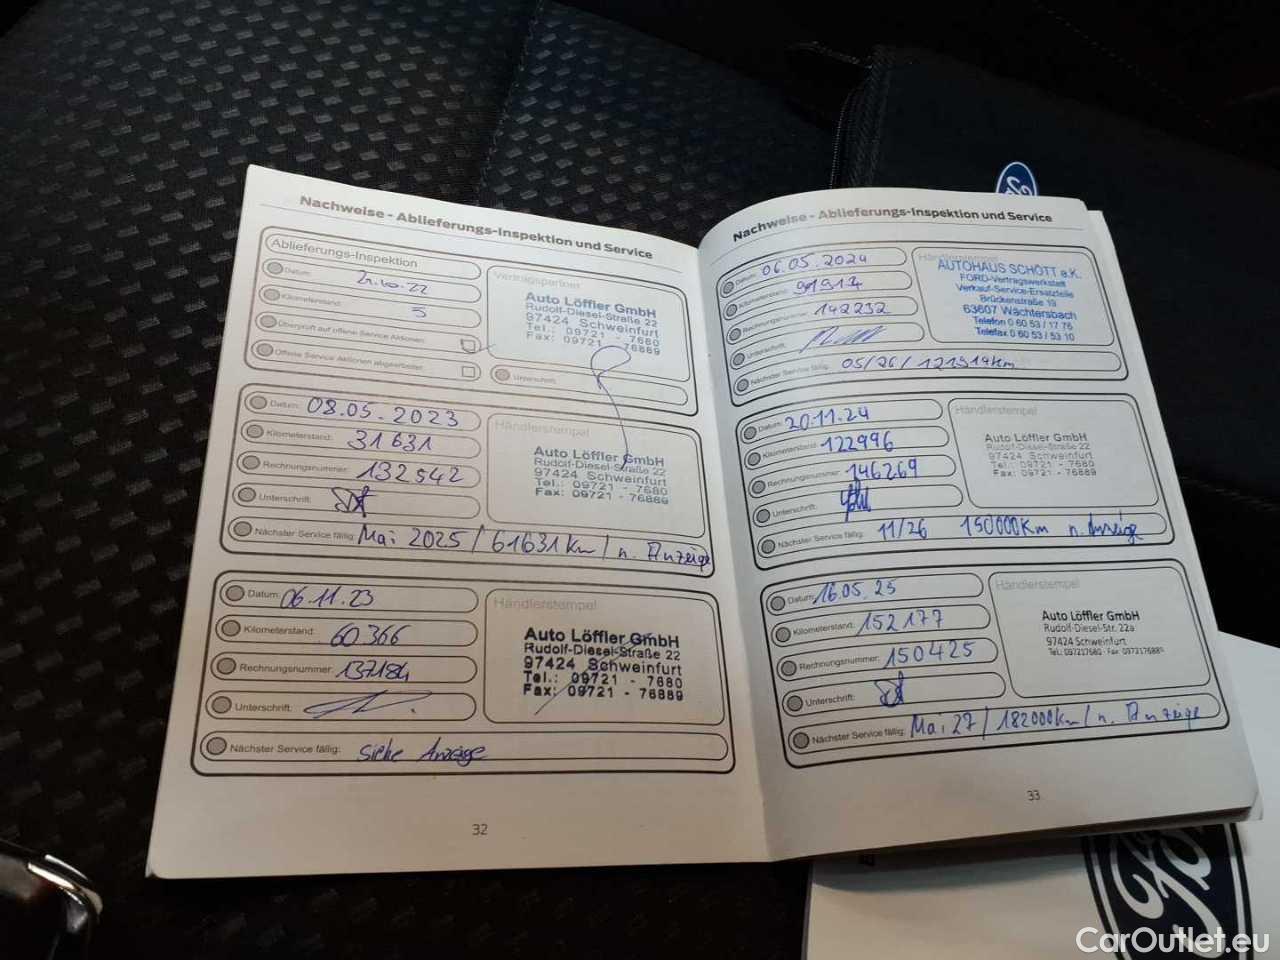 Nachweise - Ablieferungs-Inspektion und Service
Ablieferungs-Inspektion
Datum:
Kilometerstand: 5
Überprüft auf offene Service Aktionen:
Offene Service Aktionen abgearbeitet:
Vertragspartner
Auto Löffler GmbH
Rudolf-Diesel-Straße 22
97424 Schweinfurt
Tel.: 09721 - 7680
Fax: 09721 - 76889
Unterschrift:
Datum: 08.05.2023
Kilometerstand: 31631
Rechnungsnummer: 132542
Unterschrift:
Nächster Service fällig: Mai 2025 / 61631 Km / n. Anzeige
Händlerstempel
Auto Löffler GmbH
Rudolf-Diesel-Straße 22
97424 Schweinfurt
Tel.: 09721 - 7680
Fax: 09721 - 76889
Datum: 06.11.23
Kilometerstand: 60366
Rechnungsnummer: 137184
Unterschrift:
Nächster Service fällig: siehe Anzeige
Händlerstempel
Auto Löffler GmbH
Rudolf-Diesel-Straße 22
97424 Schweinfurt
Tel.: 09721 - 7680
Fax: 09721 - 76889
32
Nachweise - Ablieferungs-Inspektion und Service
Datum: 06.05.2024
Kilometerstand: 91914
Rechnungsnummer: 142232
Unterschrift:
Nächster Service fällig: 05/26/ 121914km
Händlerstempel
AUTOHAUS SCHÖTT e.K.
FORD-Vertragswerkstatt
Verkauf-Service-Ersatzteile
Brückenstraße 19
63607 Wächtersbach
Telefon 0 60 53 / 17 76
Telefax 0 60 53 / 53 10
Datum: 20.11.24
Kilometerstand: 122996
Rechnungsnummer: 146269
Unterschrift:
Nächster Service fällig: 11/26 150000Km n. Anzeige
Händlerstempel
Auto Löffler GmbH
Rudolf-Diesel-Straße 22
97424 Schweinfurt
Tel.: 09721 - 7680
Fax: 09721 - 76889
Datum: 16.05.25
Kilometerstand: 152177
Rechnungsnummer: 150425
Unterschrift:
Nächster Service fällig: Mai 27 / 182000km / n. Anzeige
Händlerstempel
Auto Löffler GmbH
Rudolf-Diesel-Str. 22a
97424 Schweinfurt
Tel.: 097217680 - Fax 0972176889
33
CarOutlet.eu